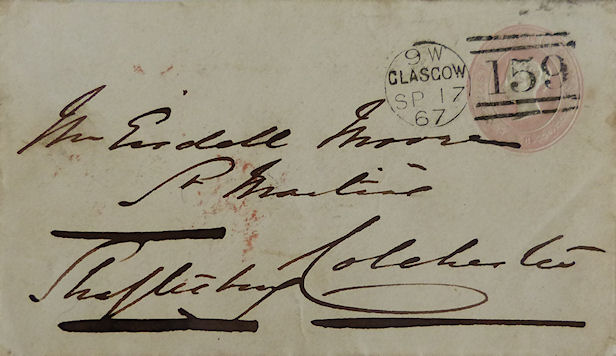 9 W
GLASGOW
SP 17
67
159
Mr Eisdell Moore
St Martins
Shaftesbury Colchester